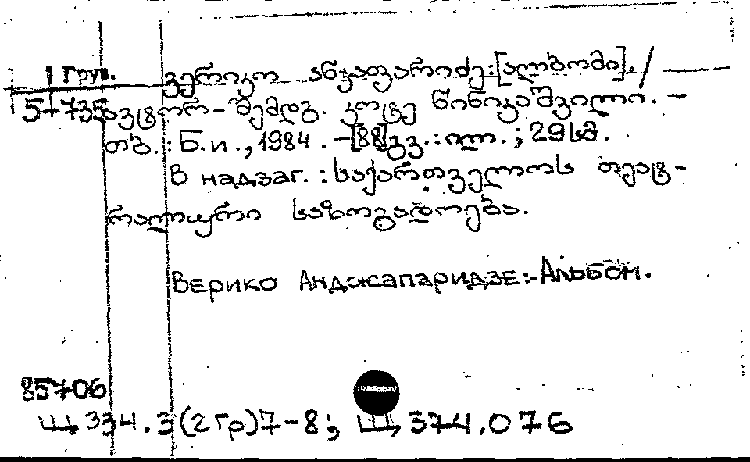 1 Груз.
ვერიკო ანჯაფარიძე: [ალბომი]. /
5-735 ავტორ-შემდგ. კოტე ნინიკაშვილი. -
თბ.: Б.и., 1984. - [88]გვ.: ილ.; 29სმ.
В надзаг.: საქართველოს თეატ-
რალური საზოგადოება.
Верико Анджапаридзе: Альбом.
85706
Щ 334.3(2Гр)7-8; Щ 374.076